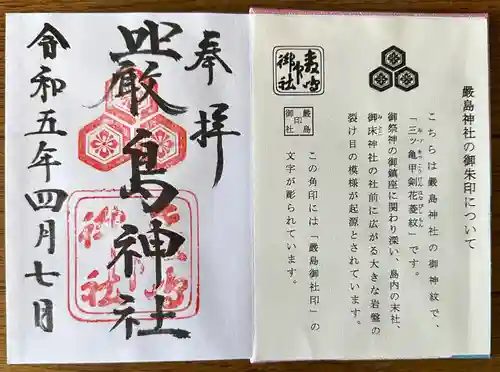 奉拝
嚴島神社
令和五年四月七日
嚴島神社の御朱印について
こちらは嚴島神社の御神紋で、
「三ッ亀甲剣花菱紋」です。
御祭神の御鎮座に関わり深い、島内の末社、
御床神社の社前に広がる大きな岩盤の
裂け目の模様が起源とされています。
嚴島
御社
印
この角印には「嚴島御社印」の
文字が彫られています。